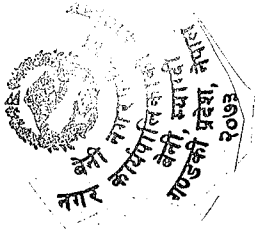 बेनी नगरपालिका
नगर कार्यपालिकाको
बेनी, म्याग्दी
गण्डकी प्रदेश, नेपाल
२०७३